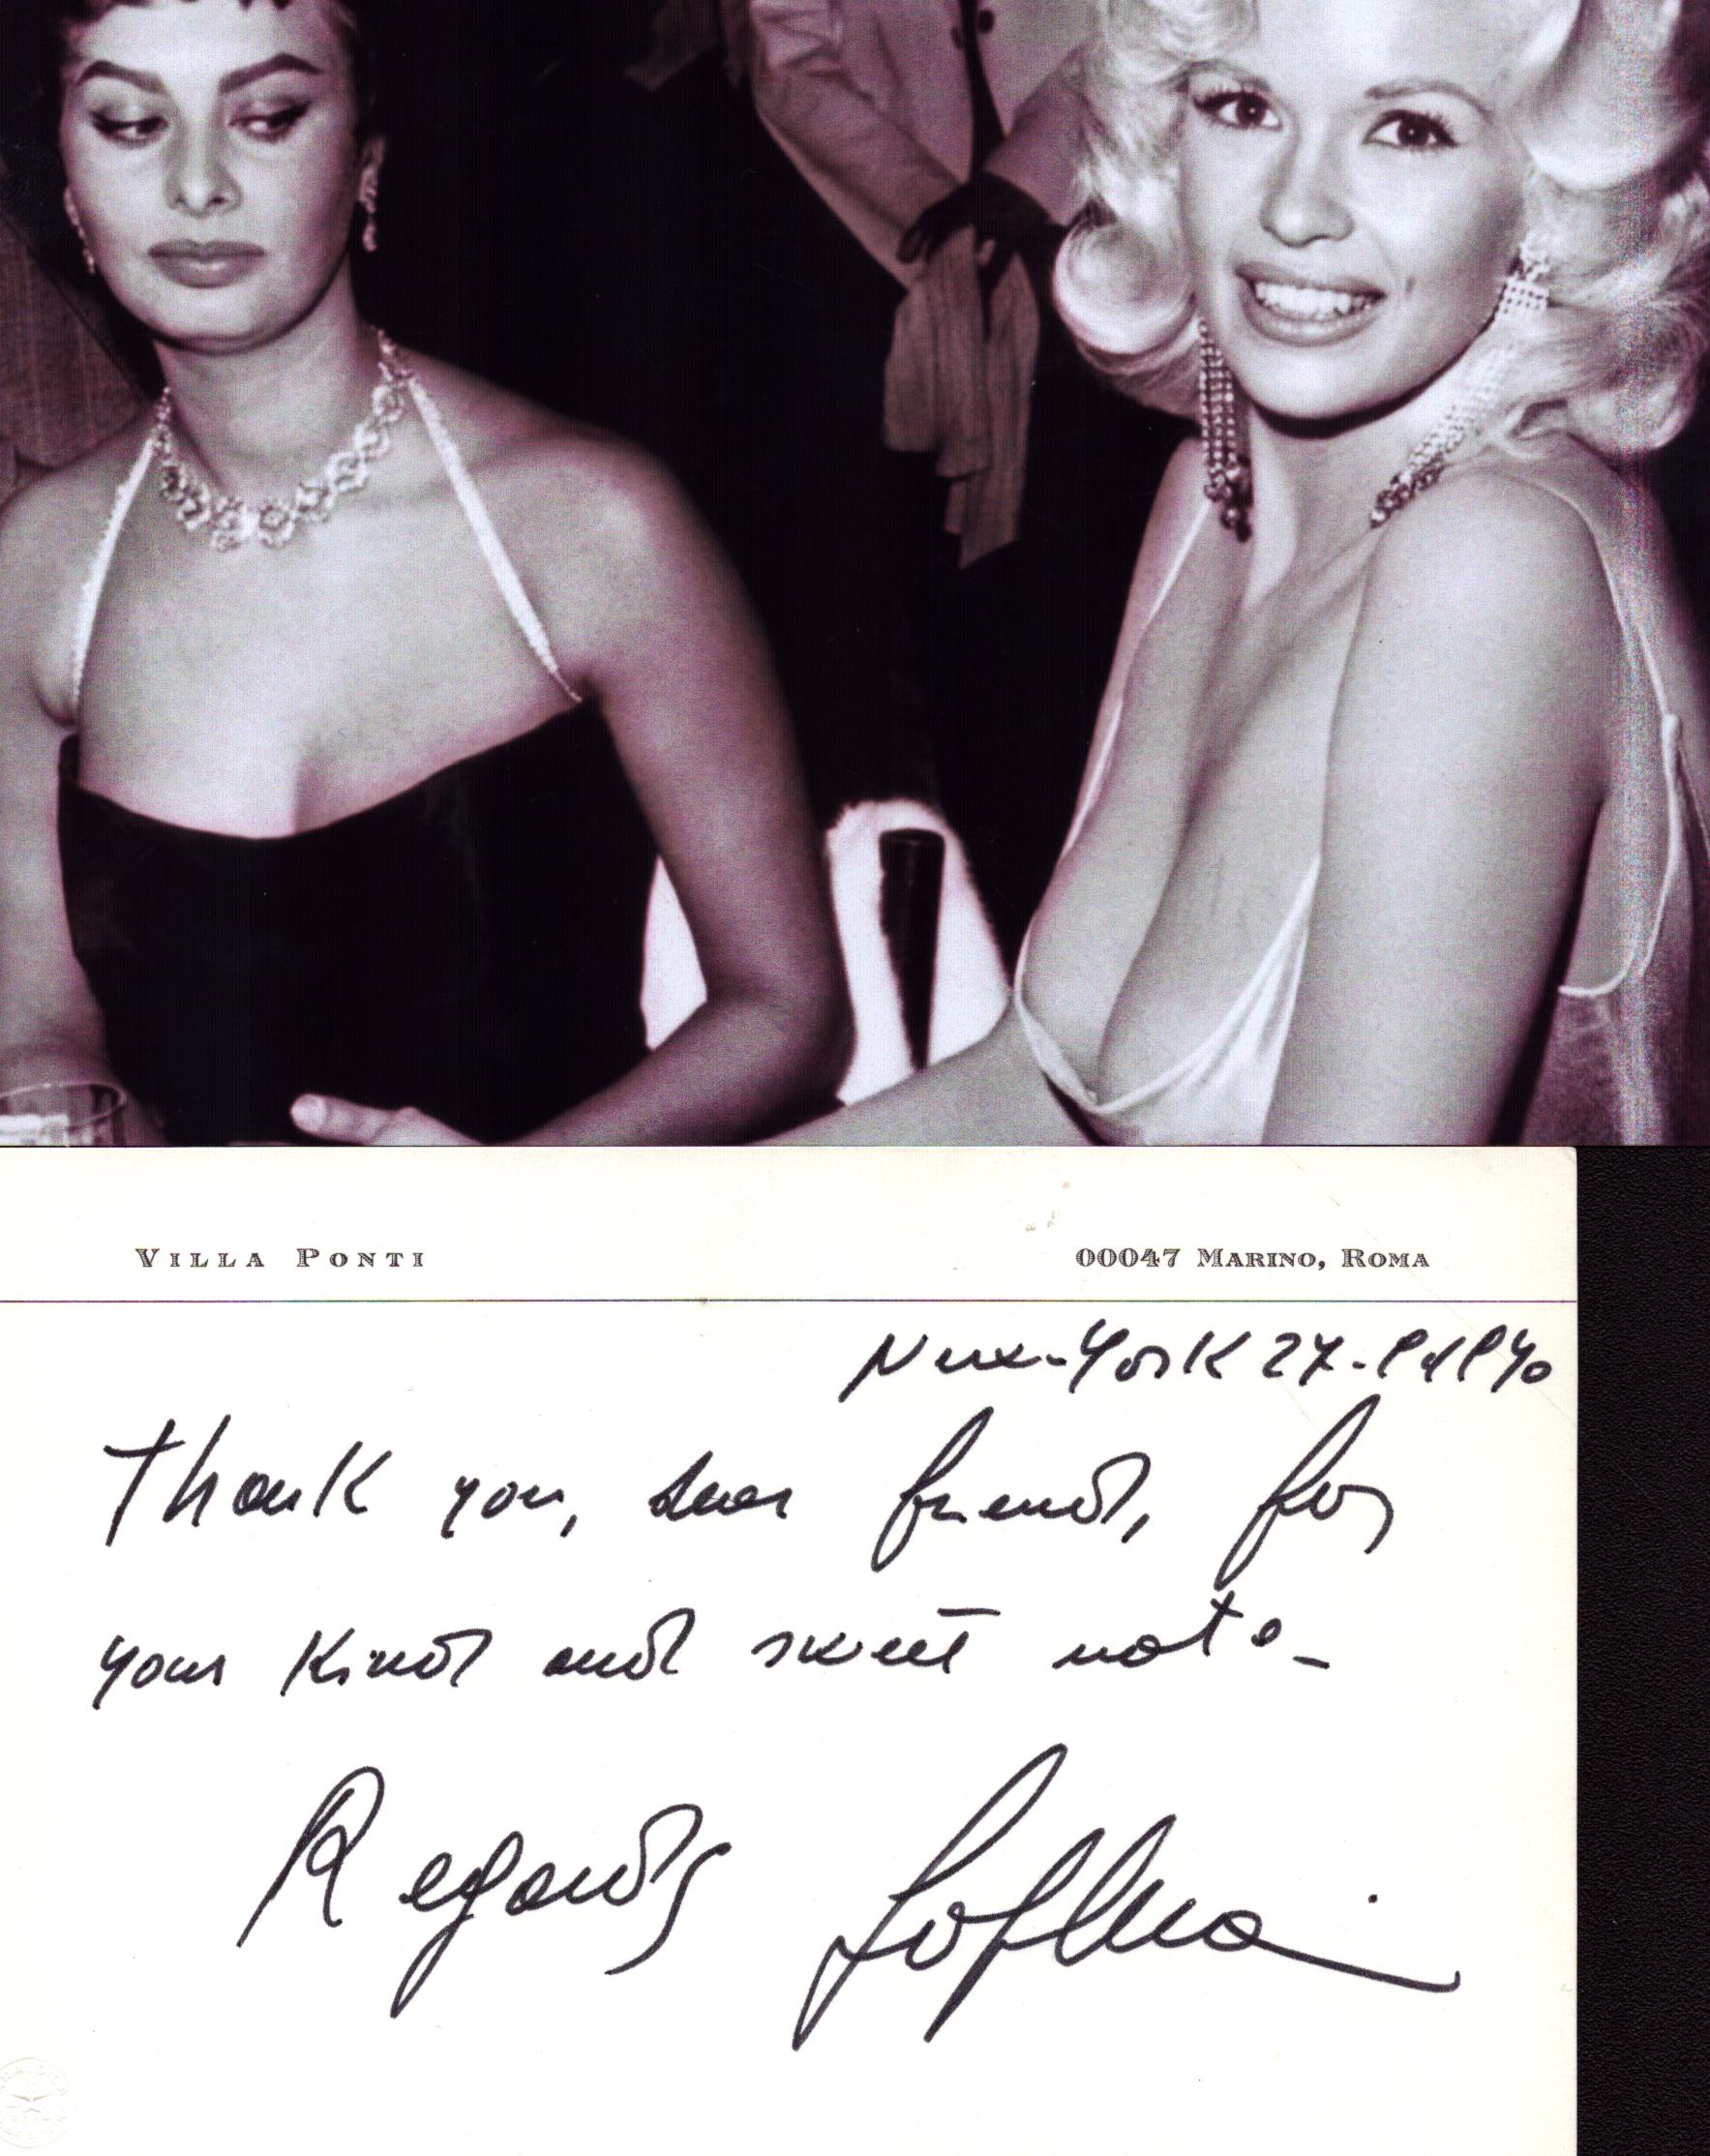 VILLA PONTI
00047 MARINO, ROMA
New-York 27.
Thank you, dear friend, for
your kind and sweet note-
Regards Sophia